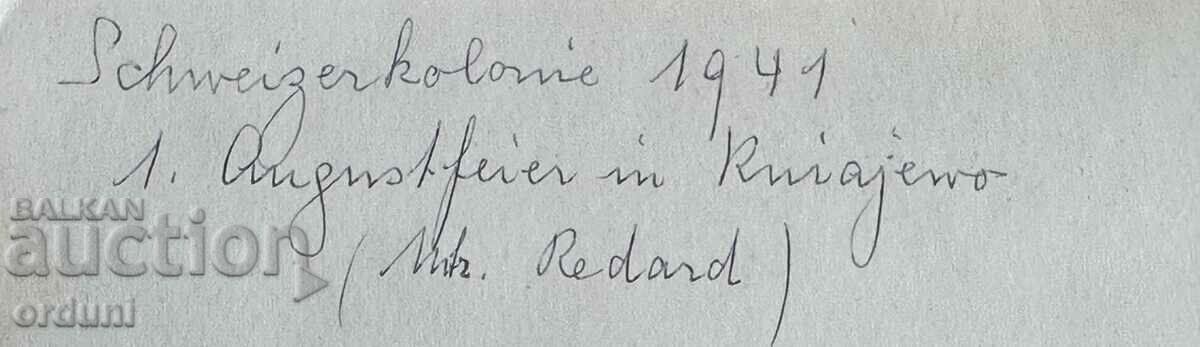 Schweizerkolonie 1941
1. Augustfeier in Kniajewo
( Redard )
BALKAN
auction
orduni